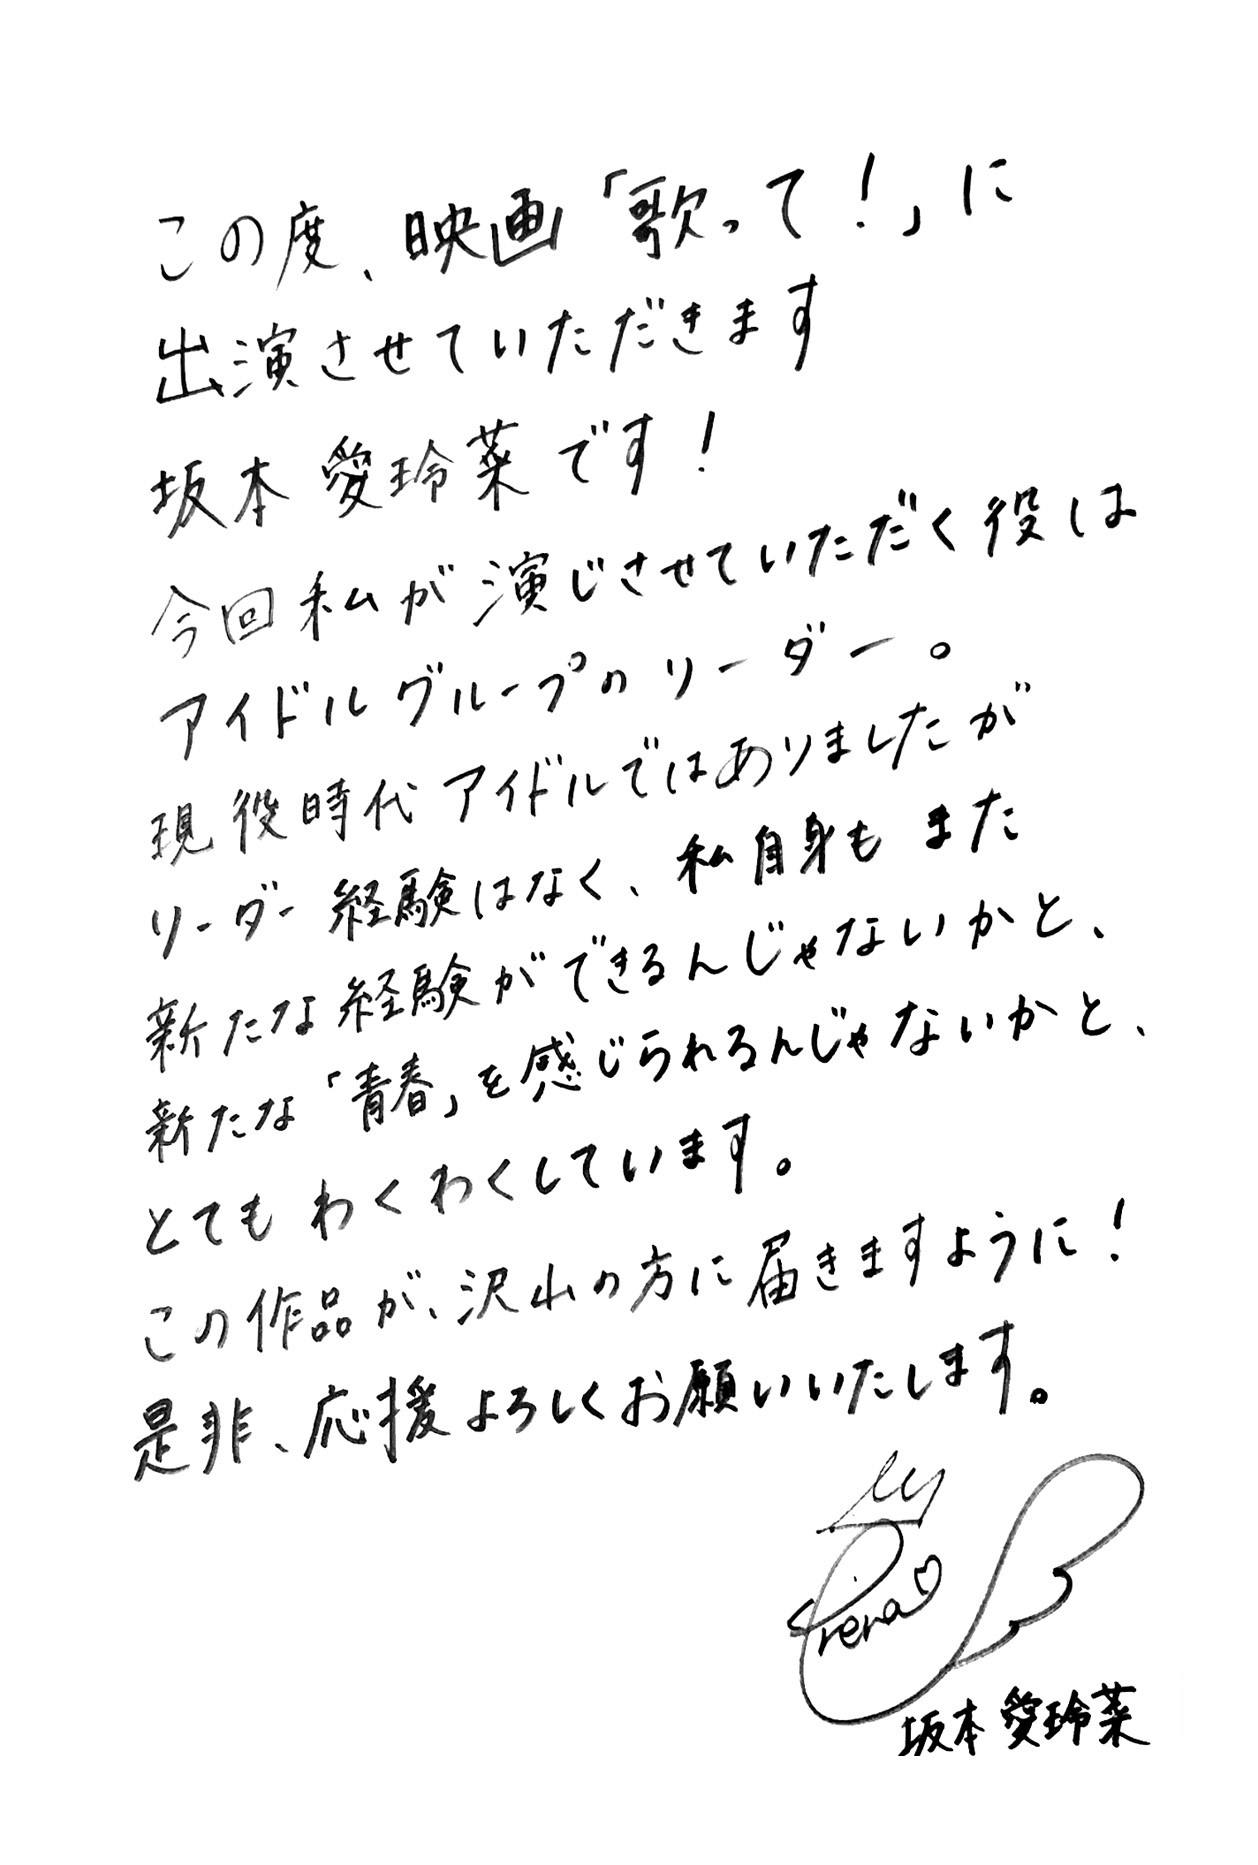 この度、映画「歌って!」に
出演させていただきます
坂本 愛玲菜です!
今回私が演じさせていただく役は
アイドルグループのリーダー。
現役時代アイドルではありましたが
リーダー経験はなく、私自身もまた
新たな経験ができるんじゃないかと、
新たな「青春」を感じられるんじゃないかと、
とてもわくわくしています。
この作品が、沢山の方に届きますように!
是非、応援よろしくお願いいたします。
erena
坂本 愛玲菜